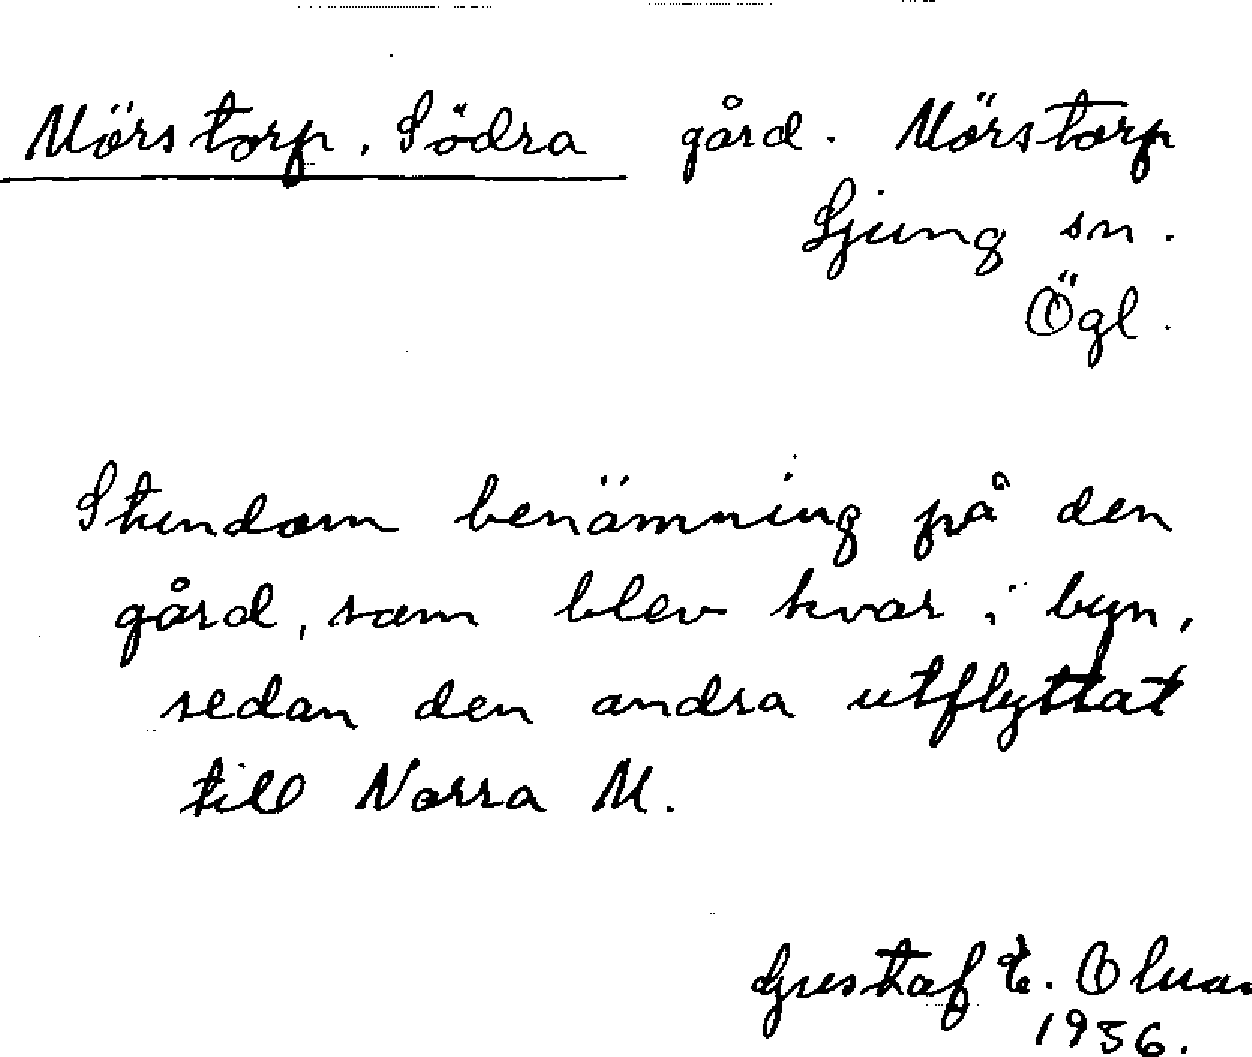 Mörstorp, Södra gård. Mörstorp
Ljung sn.
Ögl.
Stundom benämning på den
gård, som blev kvar i byn,
sedan den andra utflyttat
till Norra M.
Gustaf E.
1936.